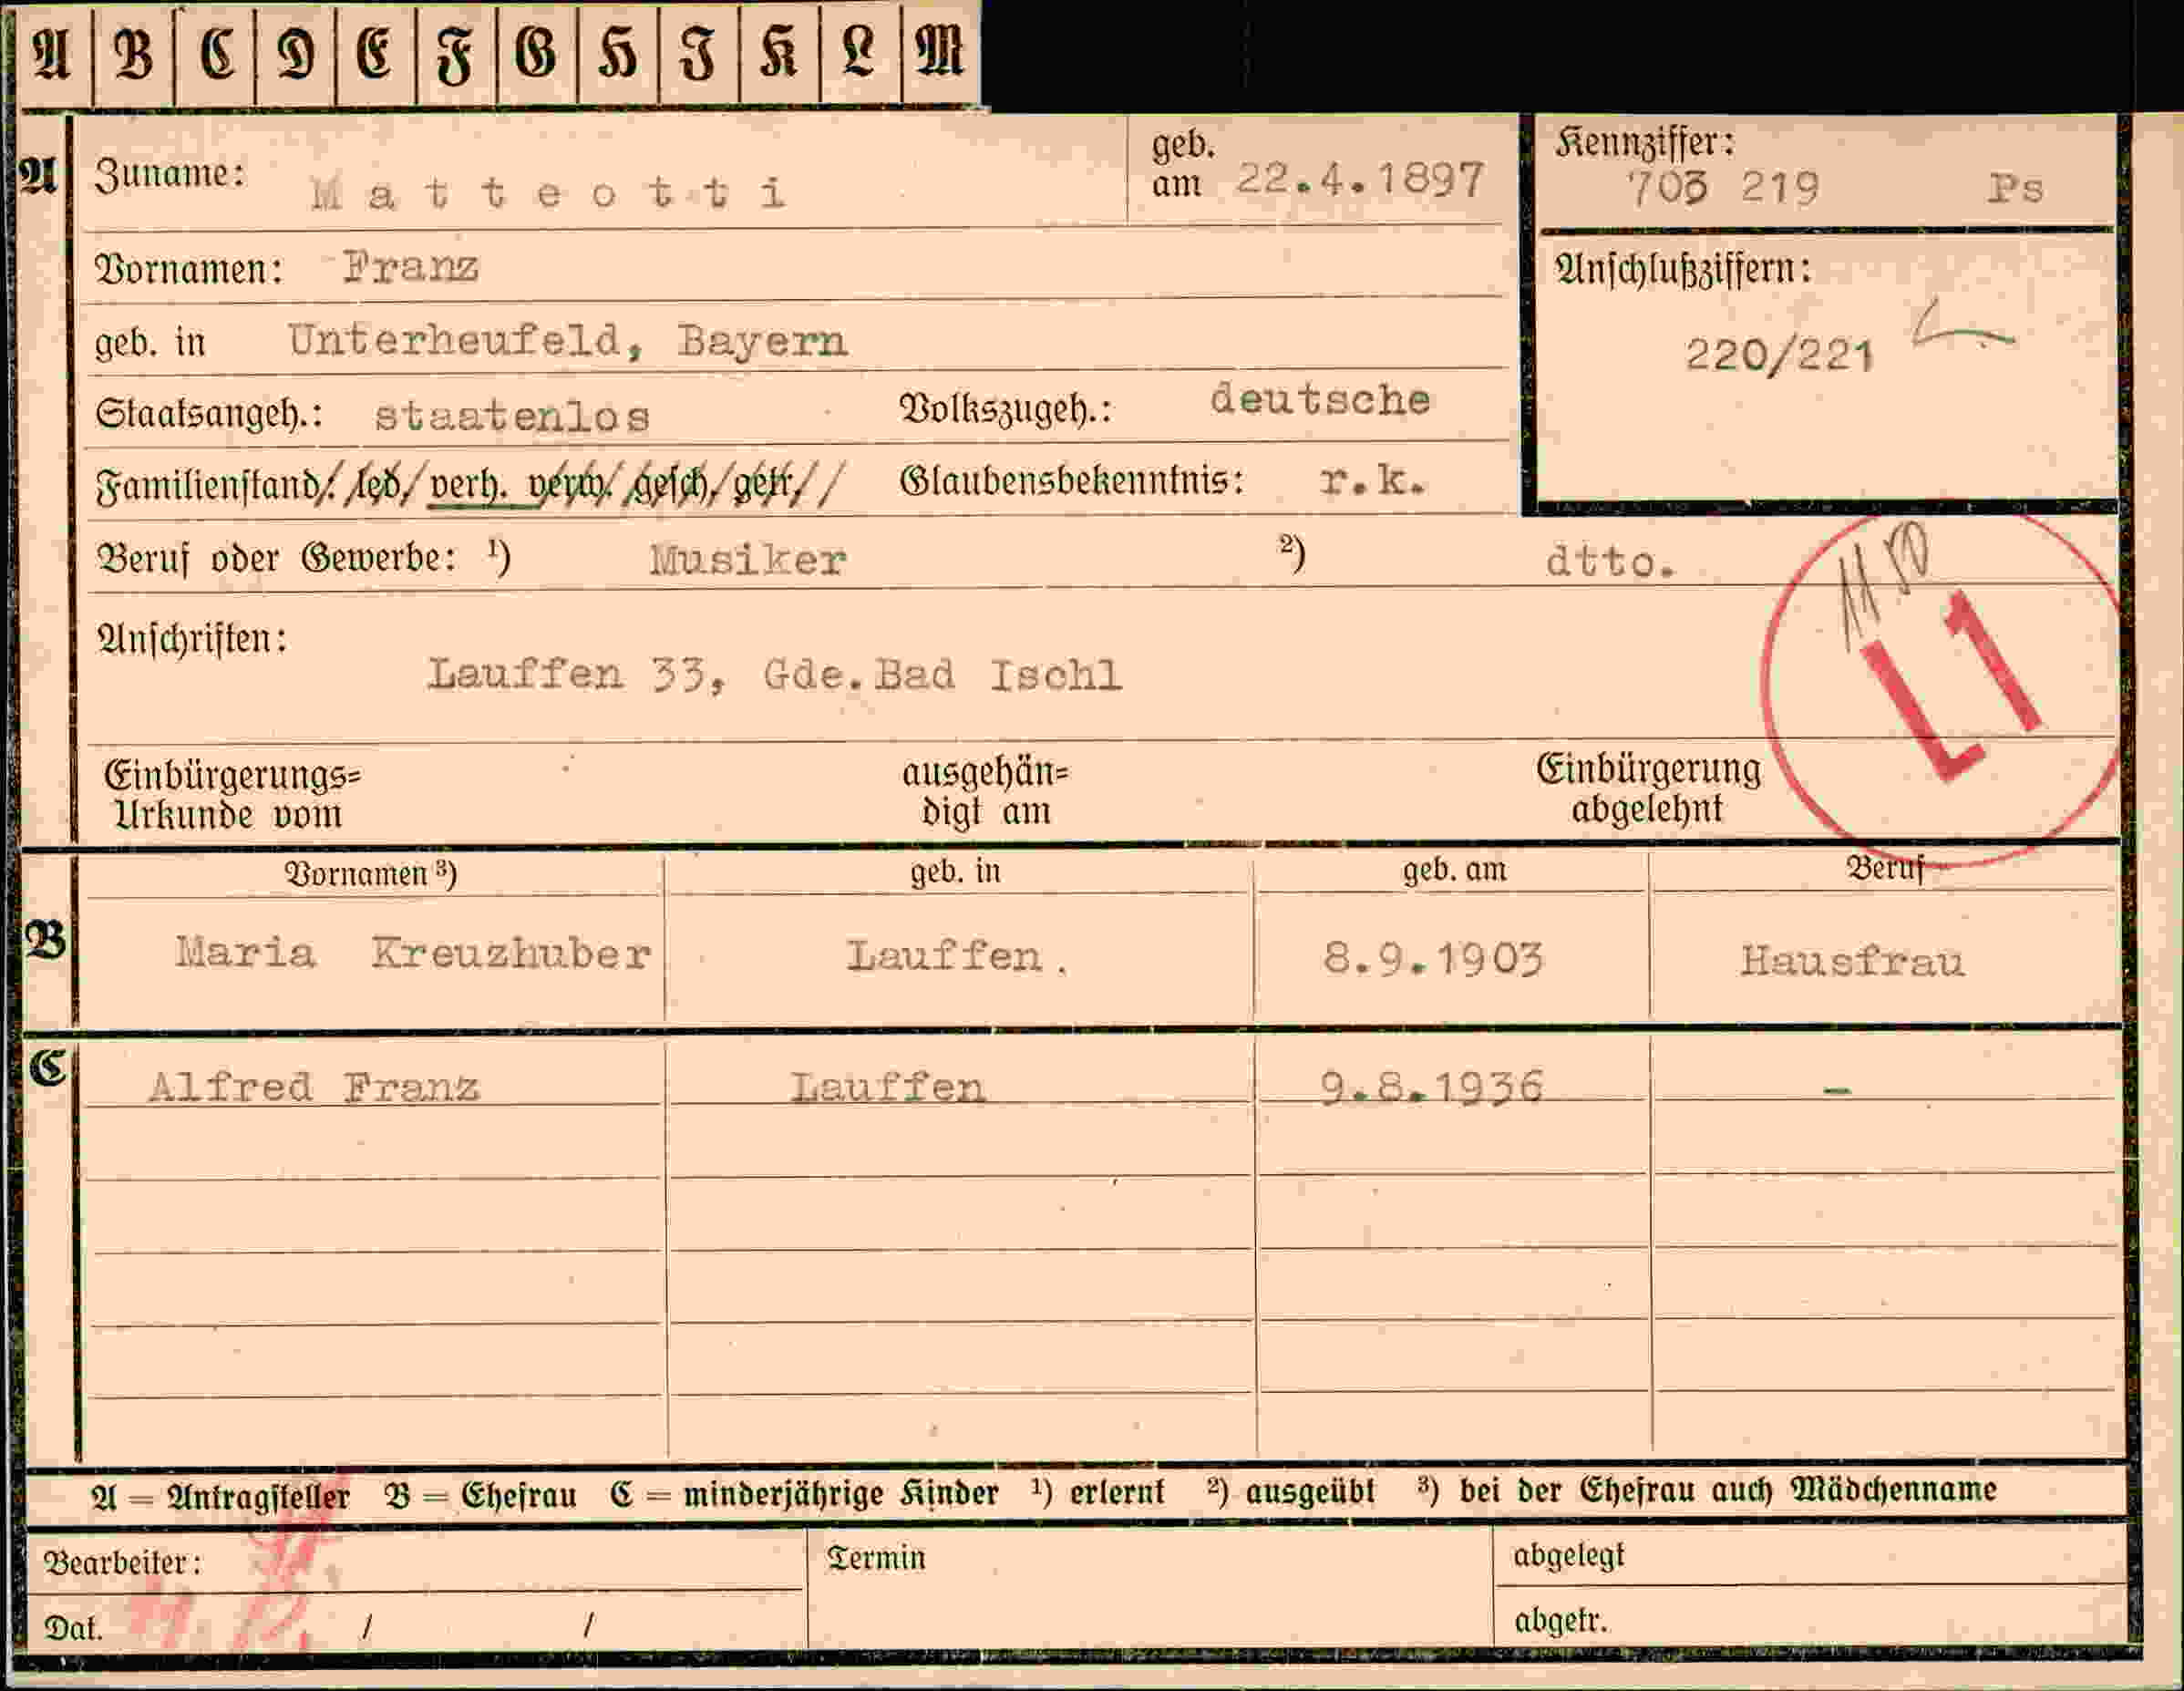 A B C D E F G H I K L M
A Zuname: Matteotti geb. am 22.4.1897
Kennziffer: 703 219 Ps
Vornamen: Franz
Anschlußziffern:
220/221
geb. in Unterheufeld, Bayern
Staatsangeh.: staatenlos Volkszugeh.: deutsche
Familienstand: led. verh. verw. gesch. getr. Glaubensbekenntnis: r.k.
Beruf oder Gewerbe: ¹) Musiker ²) dtto.
L1
Anschriften:
Lauffen 33, Gde.Bad Ischl
Einbürgerungs= Urkunde vom ausgehän= digt am Einbürgerung abgelehnt
Vornamen ³) geb. in geb. am Beruf
B Maria Kreuzhuber Lauffen. 8.9.1903 Hausfrau
C Alfred Franz Lauffen 9.8.1936 -
A = Antragsteller B = Ehefrau C = minderjährige Kinder ¹) erlernt ²) ausgeübt ³) bei der Ehefrau auch Mädchenname
Bearbeiter: Termin abgelegt
Dat. / / abgetr.